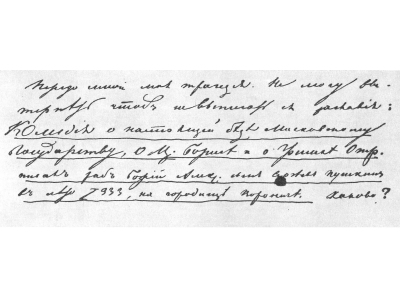 Передо мной моя трагедiя. Не могу вы-
терпѣть чтобъ не выписать ея заглавiя:
Комедiя о настоящей бѣдѣ Московскому
Государству, о Ц. Борисѣ и о Гришкѣ Отр.
писалъ рабъ Божiй Алекс. сынъ Сергѣевъ Пушкинъ
въ лѣто 7333, на городищѣ Вороничѣ. Каково?